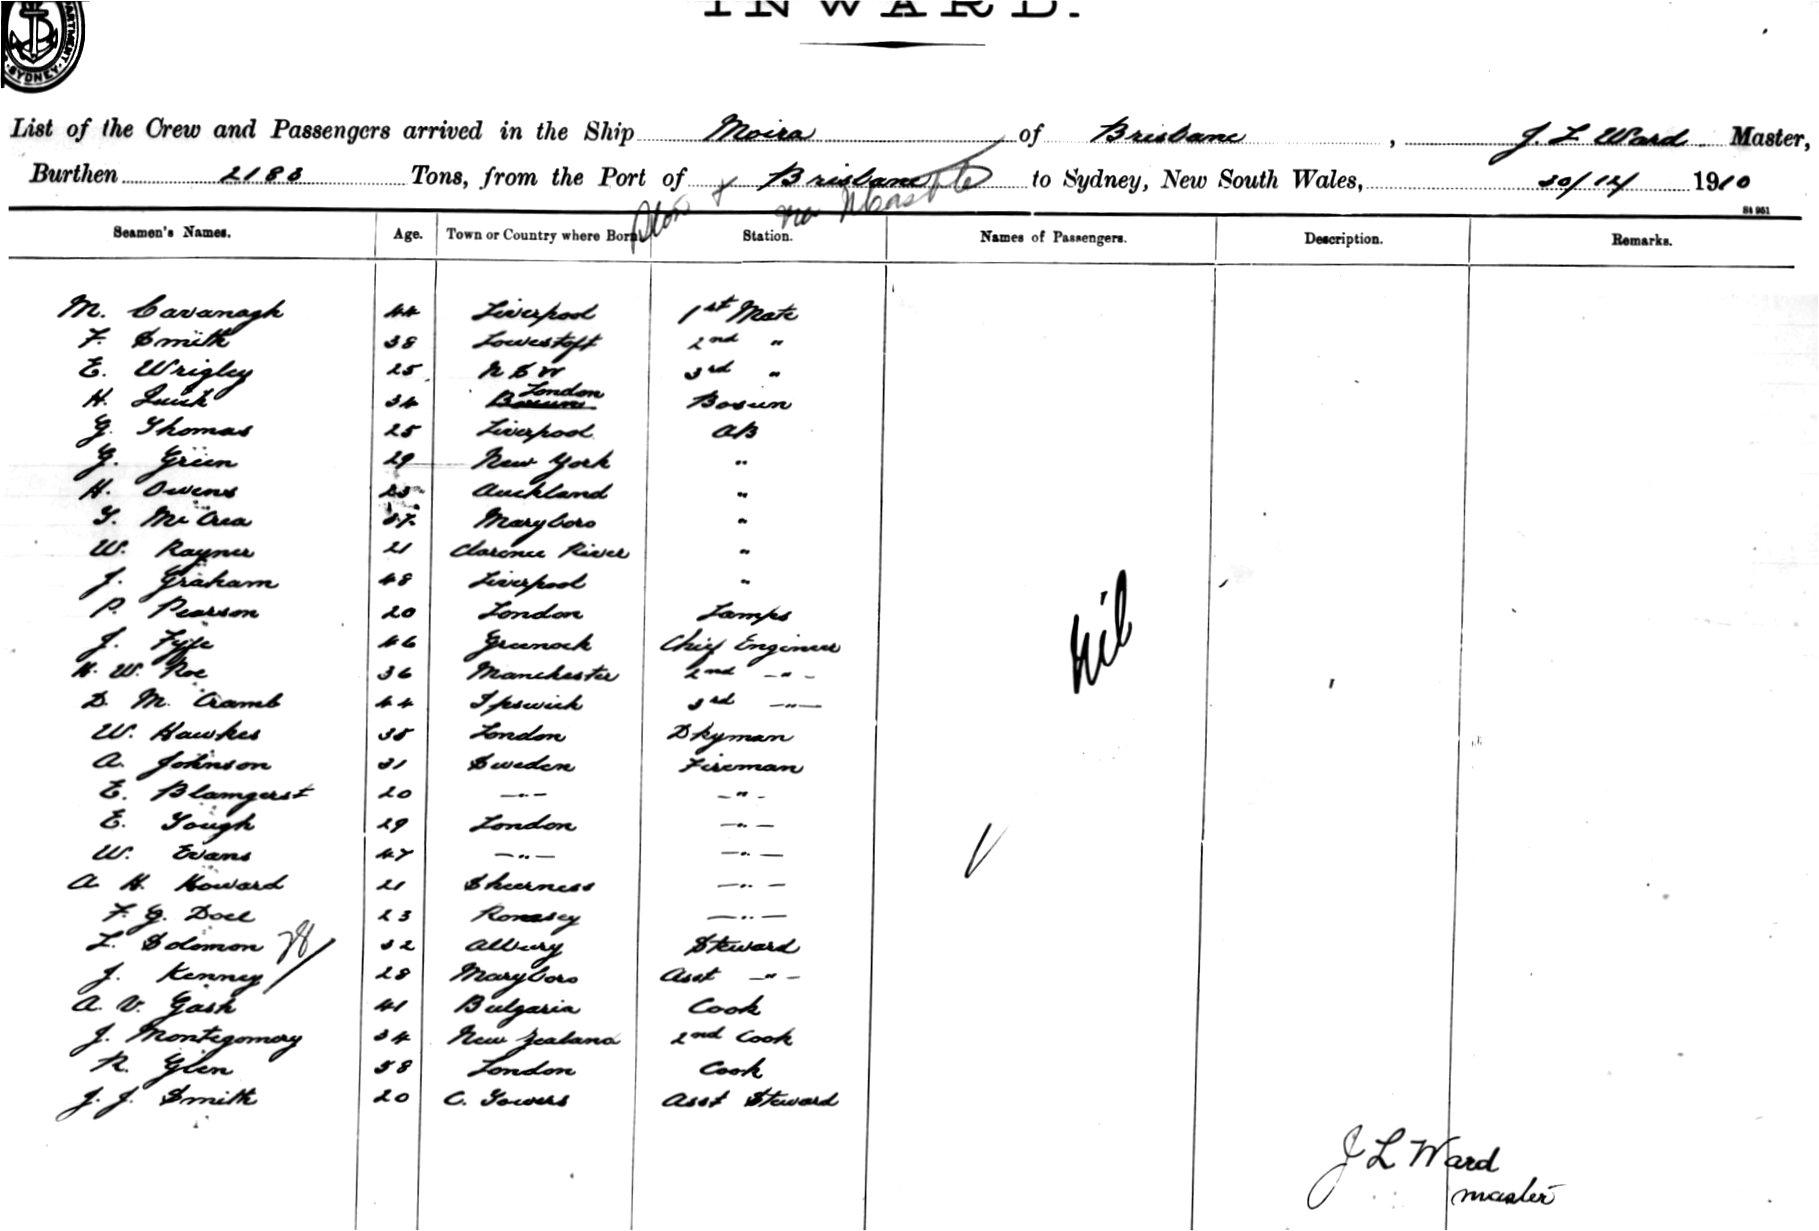 INWARD.
DEPARTMENT SYDNEY
List of the Crew and Passengers arrived in the Ship Moira of Brisbane, J. L Ward. Master,
Burthen 2183 Tons, from the Port of Brisbane to Sydney, New South Wales, 30/12/ 1910
via
St 951
Seamen's Names. Age. Town or Country where Born Station. Names of Passengers. Description. Remarks.
M. Cavanagh 44 Liverpool 1st Mate
F. Smith 38 Lowestoft 2nd "
E. Wrigley 25 N S W 3rd "
London
H. Quick 34 Bosun
G. Thomas 25 Liverpool AB
G. Green 29 New York "
H. Owens Auckland "
T. McCrea 37 Maryboro "
W. Rayner 21 Clarence River "
J. Graham 48 Liverpool "
P. Pearson 20 London Lamps
J. Fyfe 46 Greenock Chief Engineer
H. W. Roe 36 Manchester 2nd -"-
D. M. Cramb 44 Ipswich 3rd -"-
W. Hawkes 35 London Dkyman
A. Johnson 31 Sweden Fireman
E. Blamgerst 20 -"- -"-
E. Tough 29 London -"-
W. Evans 47 -"- -"-
A. H. Howard 21 Sheerness -"-
F. G. Doel 23 Romsey -"-
L. Solomon 28/ 32 Albury Steward
J. Kenney 28 Maryboro Asst -"-
A. V. Gash 41 Bulgaria Cook
J. Montgomery 34 New Zealand 2nd Cook
R. Glen 58 London Cook
J. J. Smith 20 C. Towers Asst Steward
Nil
J L Ward
master